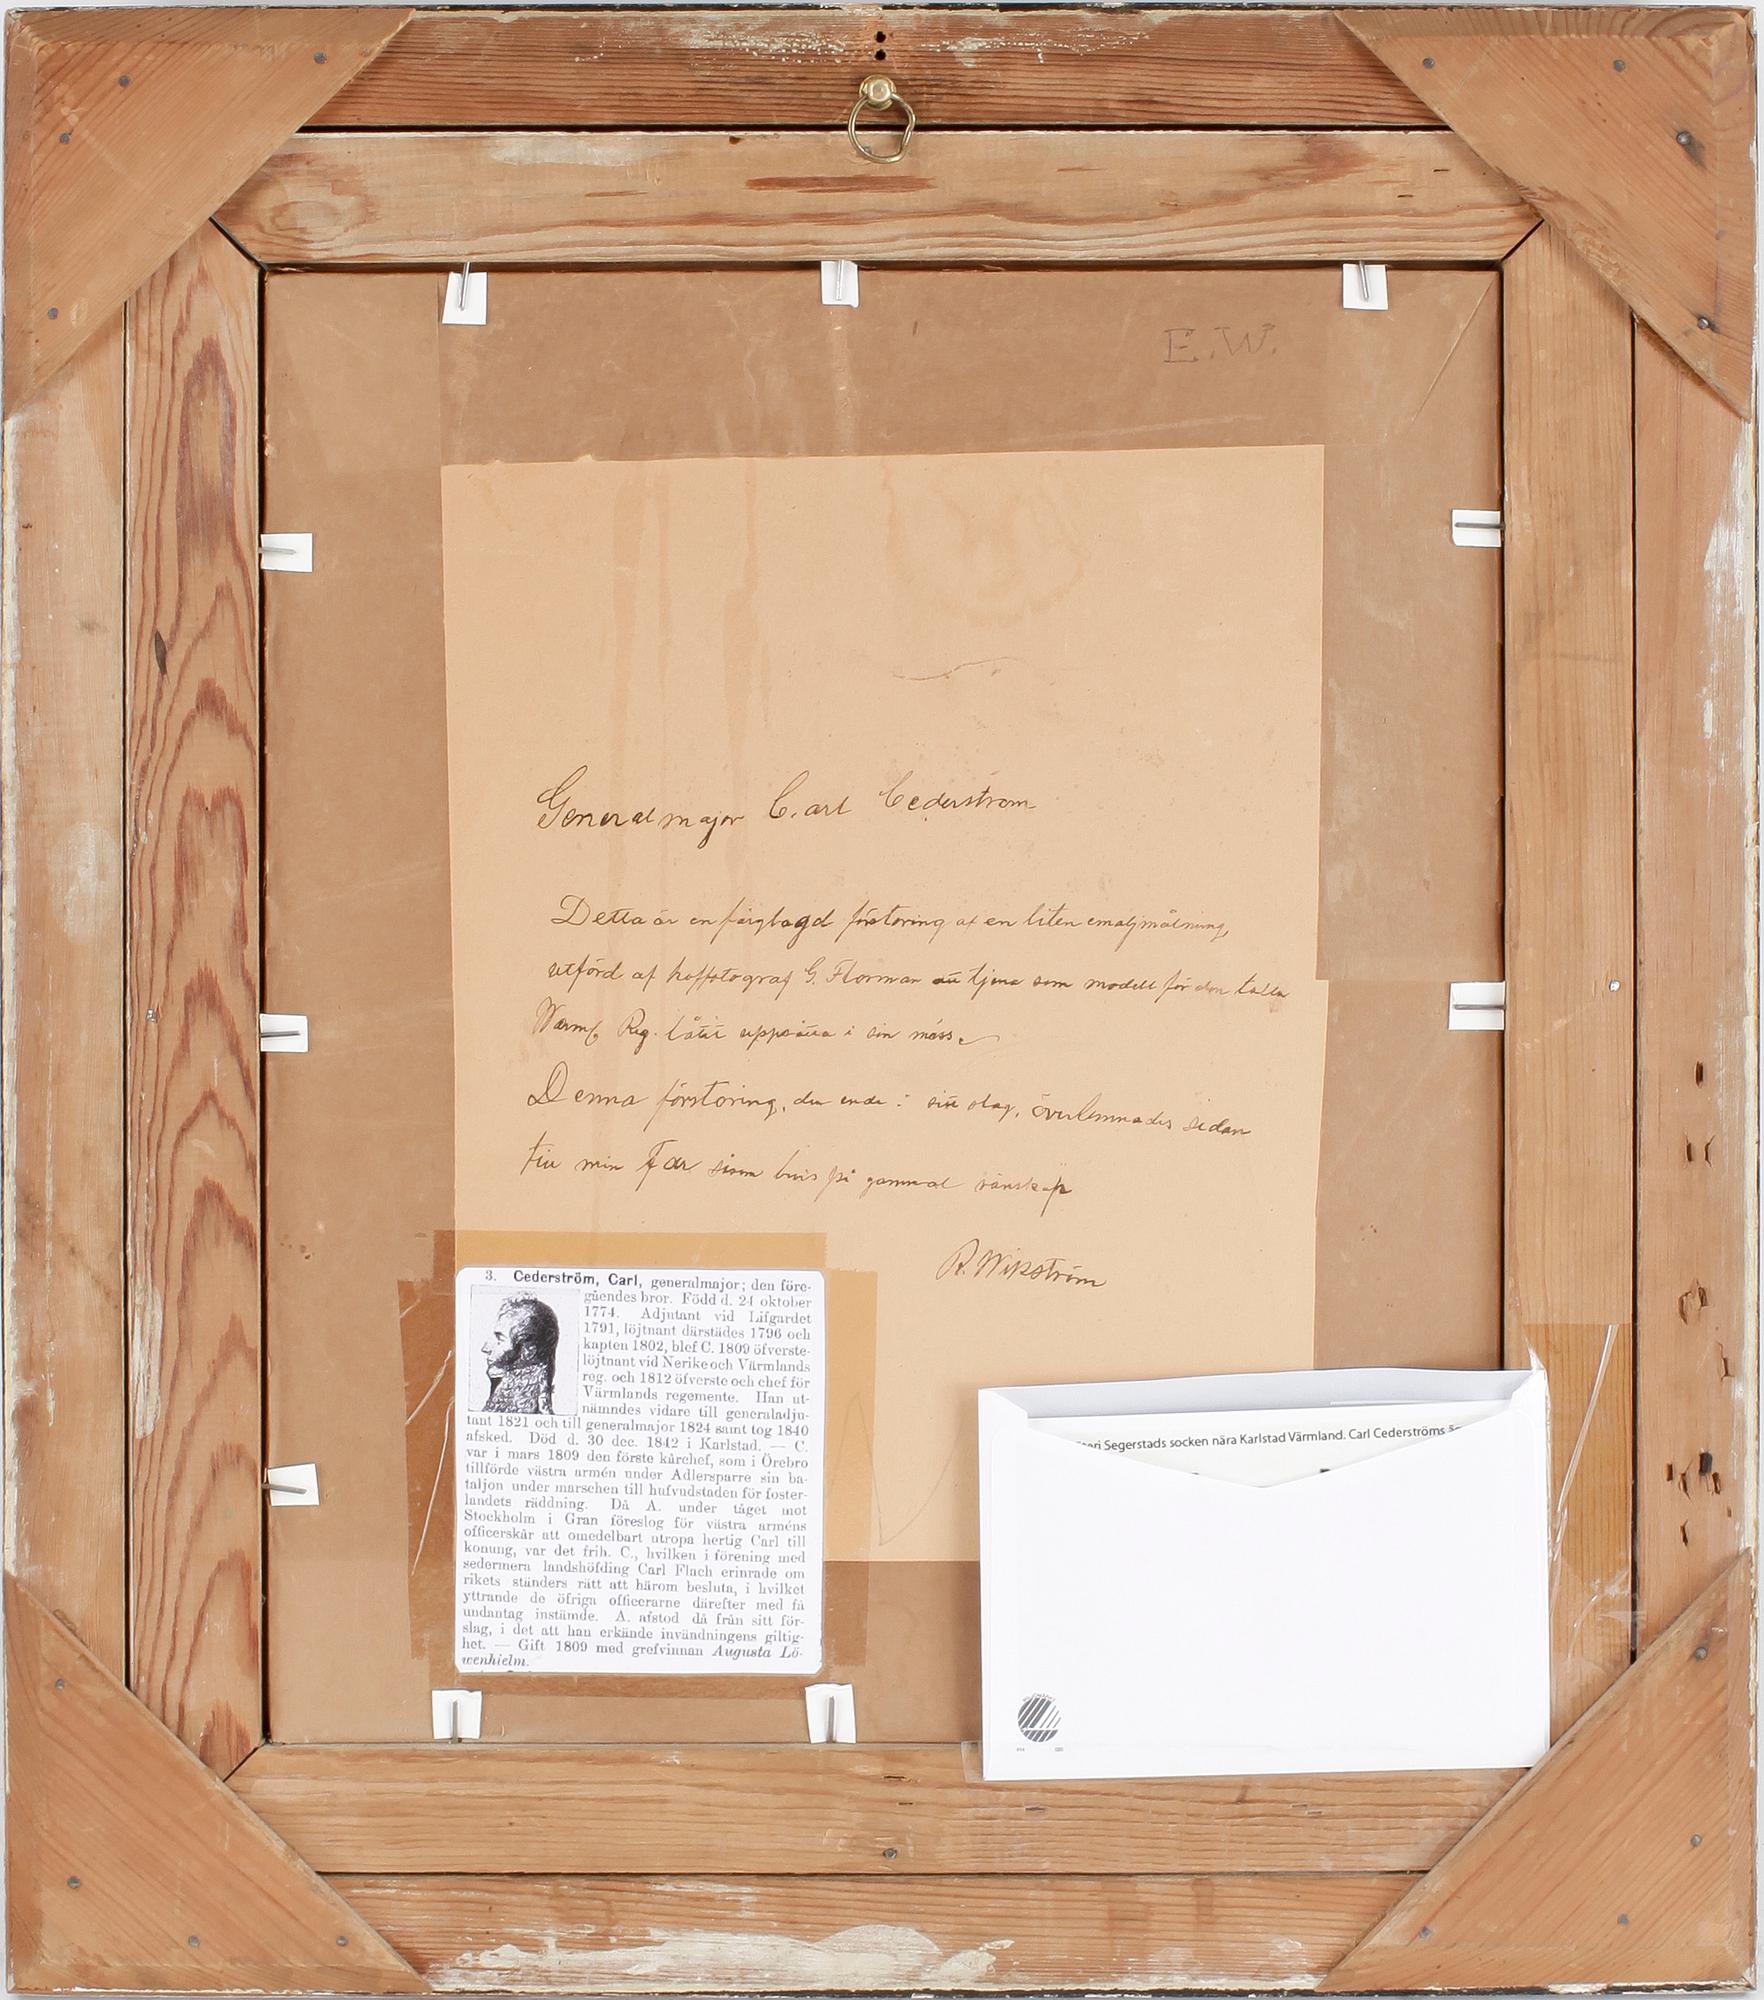 E.W.
Generalmajor Carl Cederström
Detta är en färglagd förstoring af en liten emaljmålning,
utförd af hoffotograf G. Florman att tjena som modell för den tafla
Wermlds Reg. låtit uppsätta i sin mäss.
Denna förstoring, den enda i sitt slag, överlemnades sedan
till min Far såsom bevis på gammal vänskap
R. Wikström
3. Cederström, Carl, generalmajor; den före-
gåendes bror. Född d. 24 oktober
1774. Adjutant vid Lifgardet
1791, löjtnant därstädes 1796 och
kapten 1802, blef C. 1809 öfverste-
löjtnant vid Nerike och Värmlands
reg. och 1812 öfverste och chef för
Värmlands regemente. Han ut-
nämndes vidare till generaladju-
tant 1821 och till generalmajor 1824 samt tog 1840
afsked. Död d. 30 dec. 1842 i Karlstad. — C.
var i mars 1809 den förste kårchef, som i Örebro
tillförde västra armén under Adlersparre sin ba-
taljon under marschen till hufvudstaden för foster-
landets räddning. Då A. under tåget mot
Stockholm i Gran föreslog för västra arméns
officerskår att omedelbart utropa hertig Carl till
konung, var det frih. C., hvilken i förening med
sedermera landshöfding Carl Flach erinrade om
rikets ständers rätt att härom besluta, i hvilket
yttrande de öfriga officerarne därefter med få
undantag instämde. A. afstod då från sitt för-
slag, i det att han erkände invändningens giltig-
het. — Gift 1809 med grefvinnan Augusta Lö-
wenhielm.
Segerstads socken nära Karlstad Värmland. Carl Cederströms